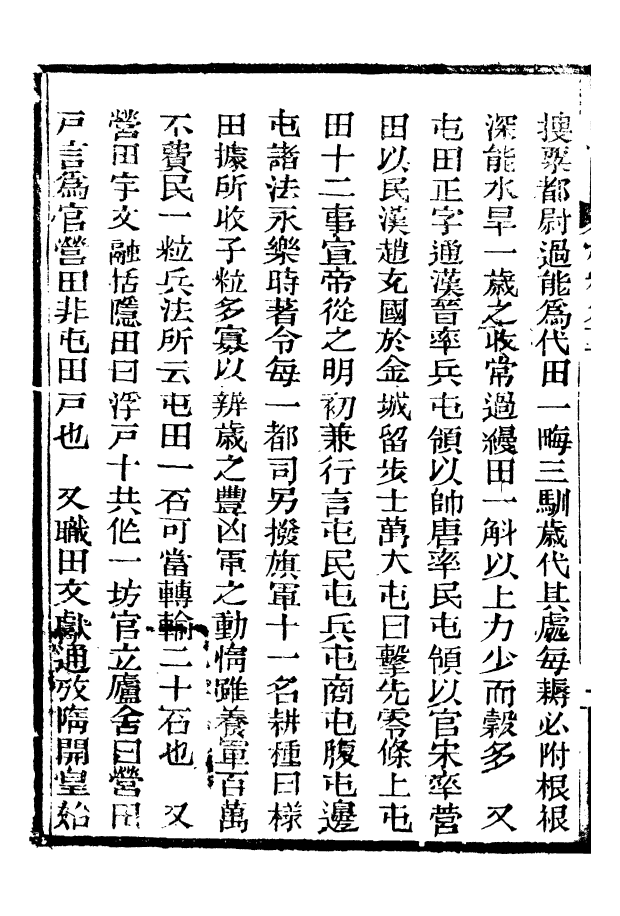 搜粟都尉過能爲代田一畮三甽歲代其處每耨必附根根
深能水旱一歲之收常過縵田一斛以上力少而穀多　又
屯田正字通漢晉率兵屯領以帥唐率民屯領以官宋率營
田以民漢趙充國於金城留步士萬大屯曰擊先零條上屯
田十二事宣帝從之明初兼行言屯民屯兵屯商屯腹屯邊
屯諸法永樂時著令每一都司另撥旗軍十一名耕種曰樣
田據所收子粒多寡以辨歲之豐凶軍之動惰雖養軍百萬
不費民一粒兵法所云屯田一石可當轉輸二十石也　又
營田宇文融括隱田曰浮戸十共作一坊官立廬舍曰營田
戸言爲官營田非屯田戸也　又職田文獻通攷隋開皇始